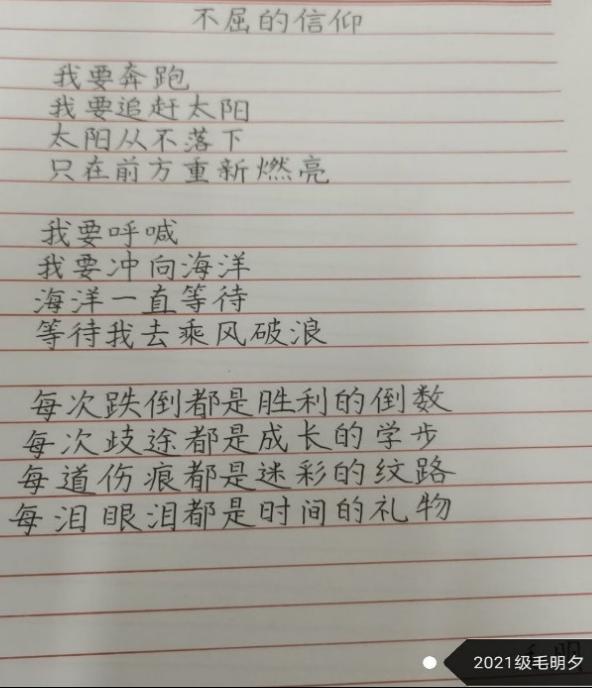 不屈的信仰
我要奔跑
我要追赶太阳
太阳从不落下
只在前方重新燃亮
我要呼喊
我要冲向海洋
海洋一直等待
等待我去乘风破浪
每次跌倒都是胜利的倒数
每次歧途都是成长的学步
每道伤痕都是迷彩的纹路
每泪眼泪都是时间的礼物
2021级毛明夕